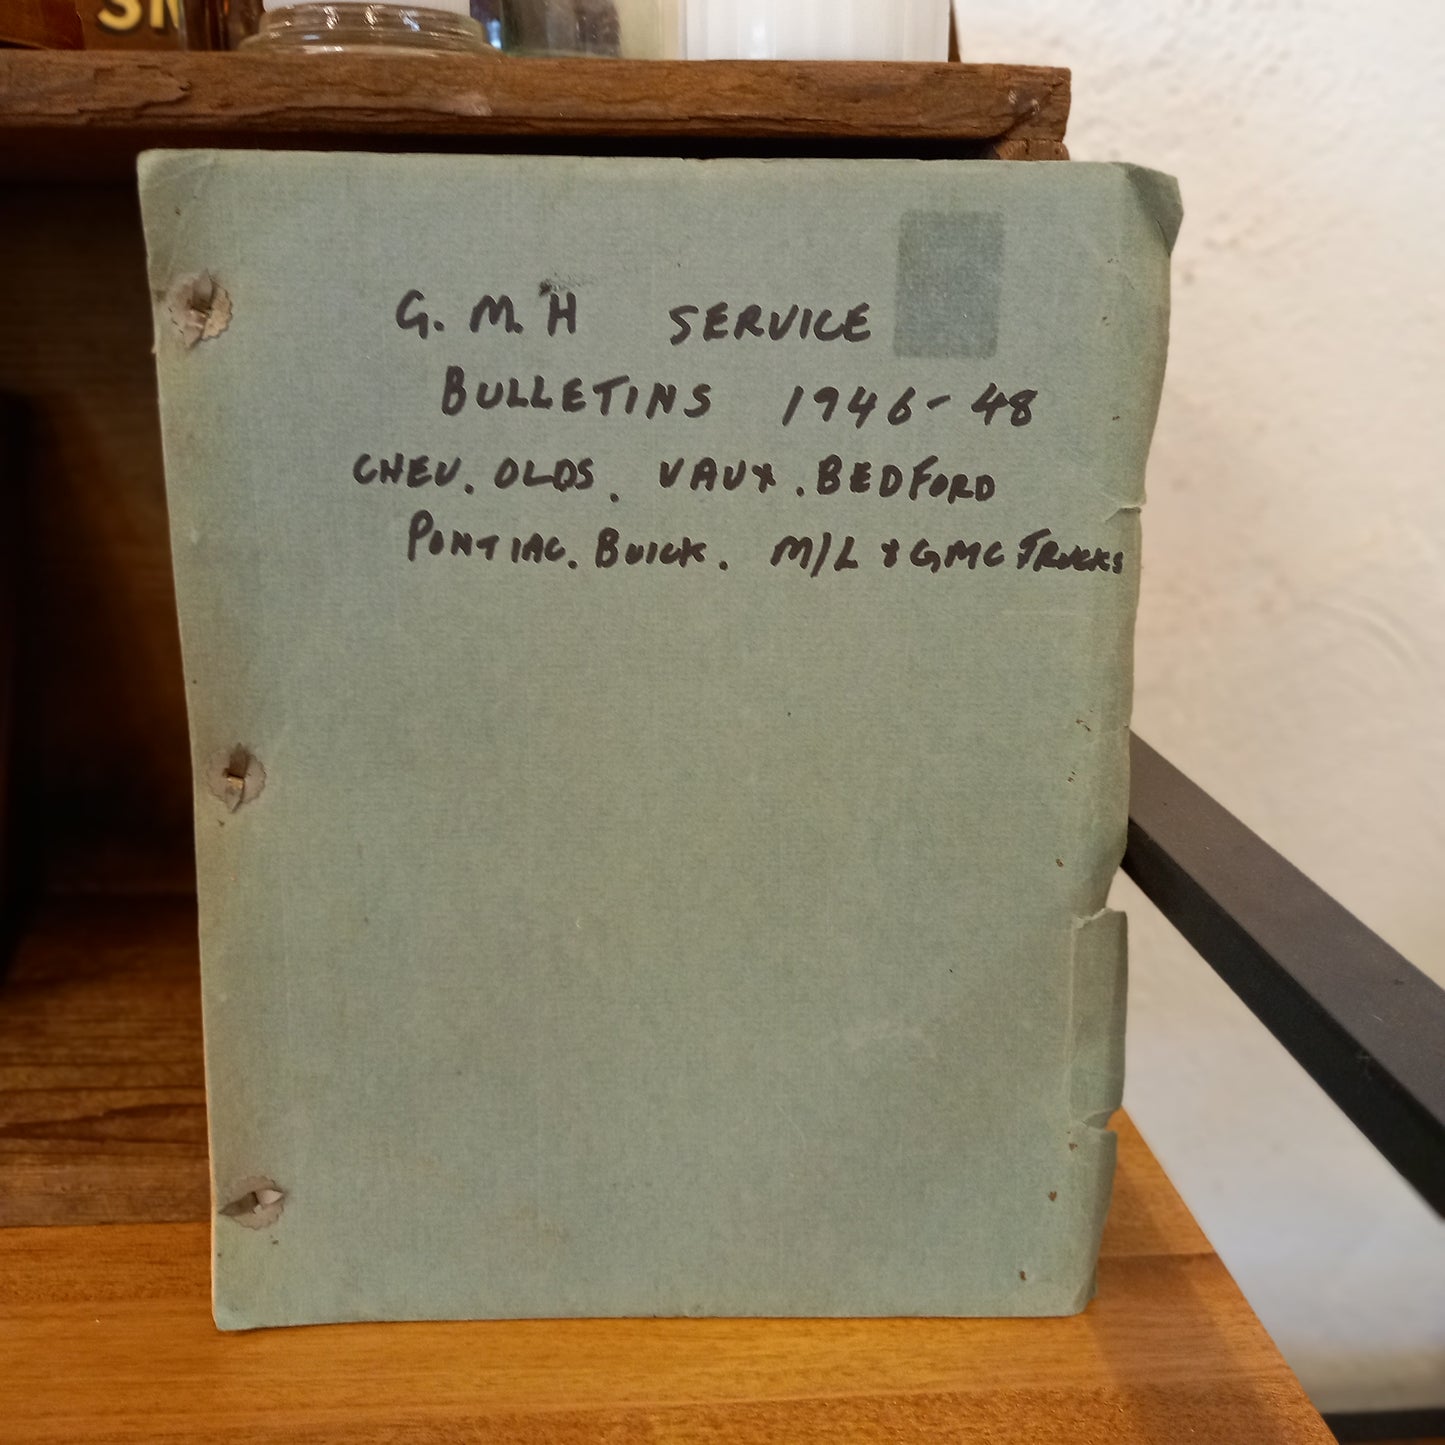 G. M. H SERVICE
BULLETINS 1946-48
CHEV. OLDS. VAUX. BEDFORD
PONTIAC. BUICK. M/L & GMC TRUCKS